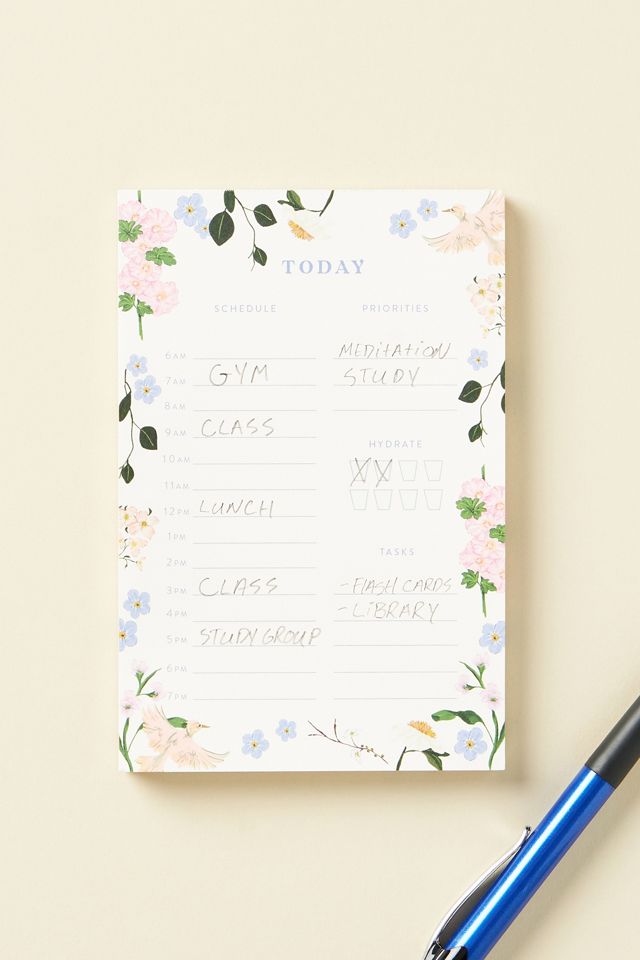 TODAY
SCHEDULE
6AM
7AM GYM
8AM
9AM CLASS
10AM
11AM
12PM LUNCH
1PM
2PM
3PM CLASS
4PM
5PM STUDY GROUP
6PM
7PM
PRIORITIES
MEDITATION
STUDY
HYDRATE
TASKS
-FLASH CARDS
-LIBRARY